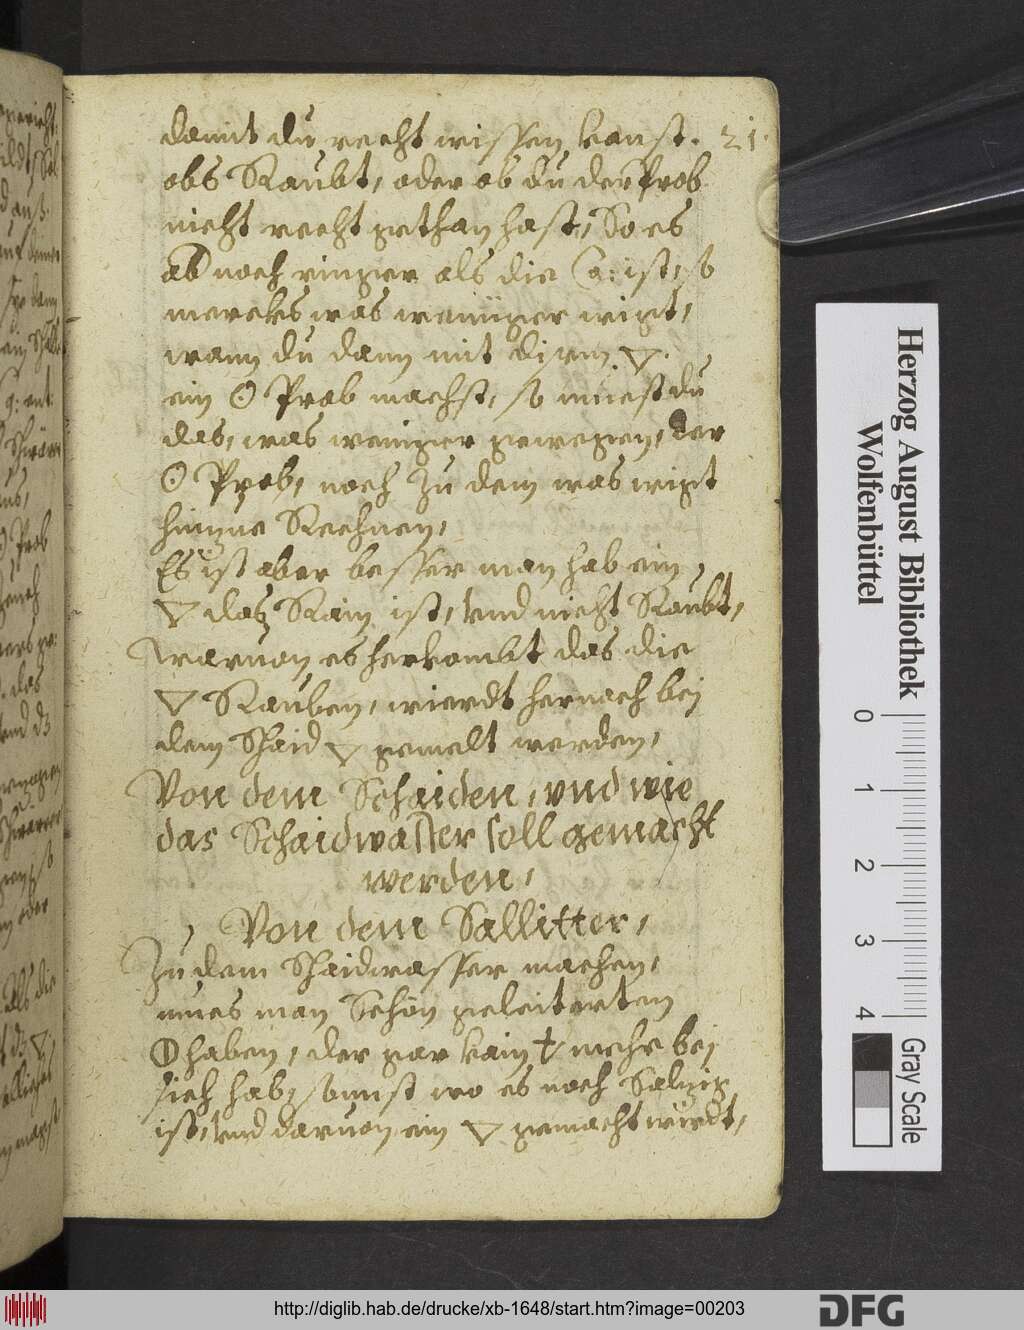 damit du recht wissen kanst. 21.
obs Raubt, oder ob du der Prob
nicht recht gethan hast, So es
ab noch ringer als die C a: ist, so
mercks was weniger wigt,
wann du dann mit disem ▽.
ein ☉ Prob machst, so muest du
das, was weniger gewegen, der
☉ Prob, noch Zu dem was wigt
hinzue Rechnen,
Es ist aber besser man hab ein
▽ das Rain ist, vnd nicht Raubt,
Waruon es herkombt das die
▽ Rauben, wierdt hernach bei
dem Schaid ▽ gemelt werden,
Von dem Schaiden, vnd wie
das Schaidwasser soll gemacht
werden,
Von dem Sallitter,
Zu dem Schaidwasser machen,
mues man Schön geleiterten
🜕 haben, der gar kain mehr bei
sich hab, sonst wo es noch Salzig
ist, vnd daruon ein ▽ gemacht wirdt,
Herzog August Bibliothek
Wolfenbüttel
0 1 2 3 4
Gray Scale
http://diglib.hab.de/drucke/xb-1648/start.htm?image=00203
DFG